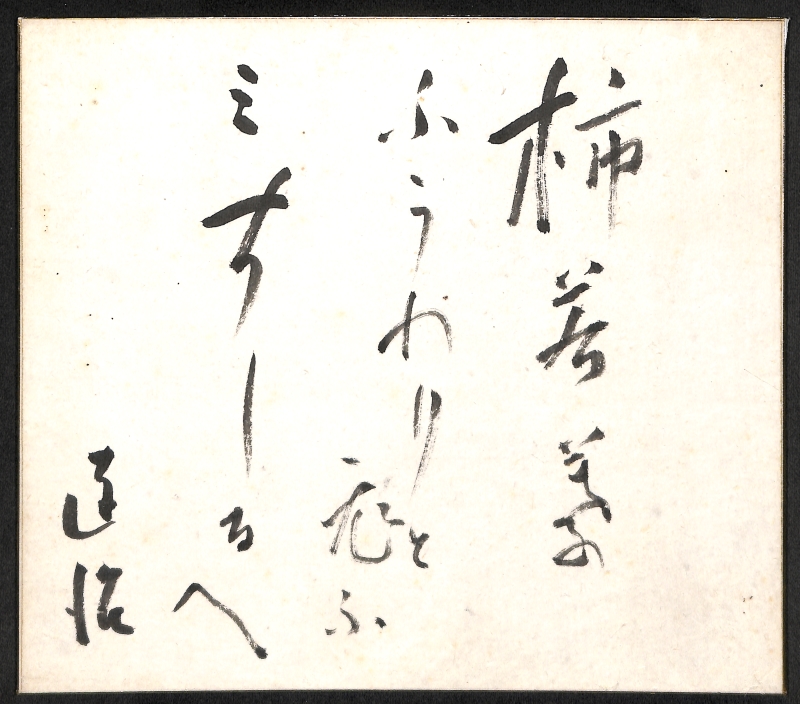 柿若葉
ふうわりと
庇ふ
ミちしるへ
達治